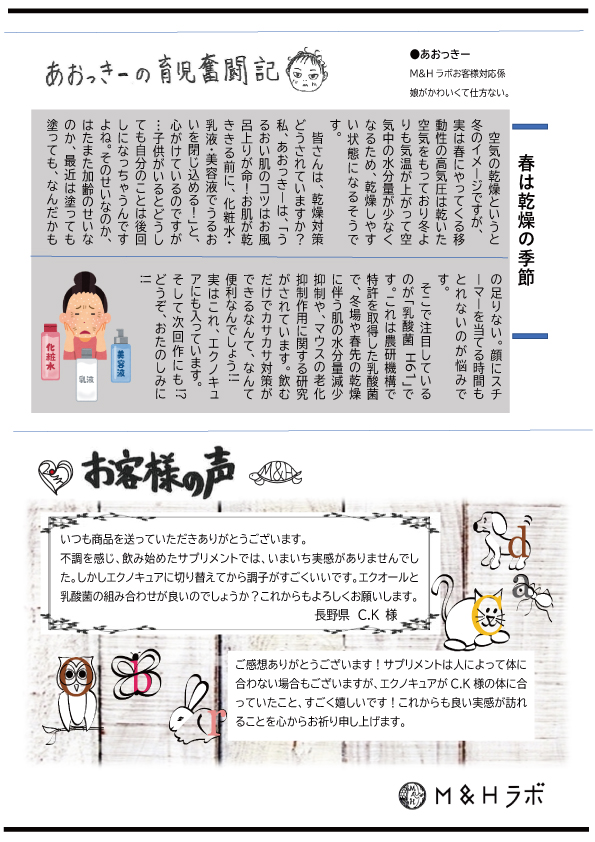 あおっきーの育児奮闘記
●あおっきー
M&Hラボお客様対応係
娘がかわいくて仕方ない。
春は乾燥の季節
空気の乾燥というと
冬のイメージですが、
実は春にやってくる移
動性の高気圧は乾いた
空気をもっており冬よ
りも気温が上がって空
気中の水分量が少なく
なるため、乾燥しやす
い状態になるそうで
す。
皆さんは、乾燥対策
どうされていますか？
私、あおっきーは、「う
るおい肌のコツはお風
呂上りが命！お肌が乾
ききる前に、化粧水・
乳液・美容液でうるお
いを閉じ込める！」と、
心がけているのですが
…子供がいるとどうし
ても自分のことは後回
しになっちゃうんです
よね。そのせいなのか、
はたまた加齢のせいな
のか、最近は塗っても
塗っても、なんだかも
の足りない。顔にスチ
ーマーを当てる時間も
とれないのが悩みで
す。
そこで注目している
のが「乳酸菌 H61」で
す。これは農研機構で
特許を取得した乳酸菌
で、冬場や春先の乾燥
に伴う肌の水分量減少
抑制や、マウスの老化
抑制作用に関する研究
がされています。飲む
だけでカサカサ対策が
できるなんて、なんて
便利なんでしょう!!
実はこれ、エクノキュ
アにも入っています。
そして次回作にも!?
どうぞ、おたのしみに
!!
化粧水
乳液
美容液
お客様の声
M&H
いつも商品を送っていただきありがとうございます。
不調を感じ、飲み始めたサプリメントでは、いまいち実感がありませんでし
た。しかしエクノキュアに切り替えてから調子がすごくいいです。エクオールと
乳酸菌の組み合わせが良いのでしょうか？これからもよろしくお願いします。
長野県 C.K 様
d
a
C
o
b
r
ご感想ありがとうございます！サプリメントは人によって体に
合わない場合もございますが、エクノキュアが C.K 様の体に合
っていたこと、すごく嬉しいです！これからも良い実感が訪れ
ることを心からお祈り申し上げます。
M&Hラボ